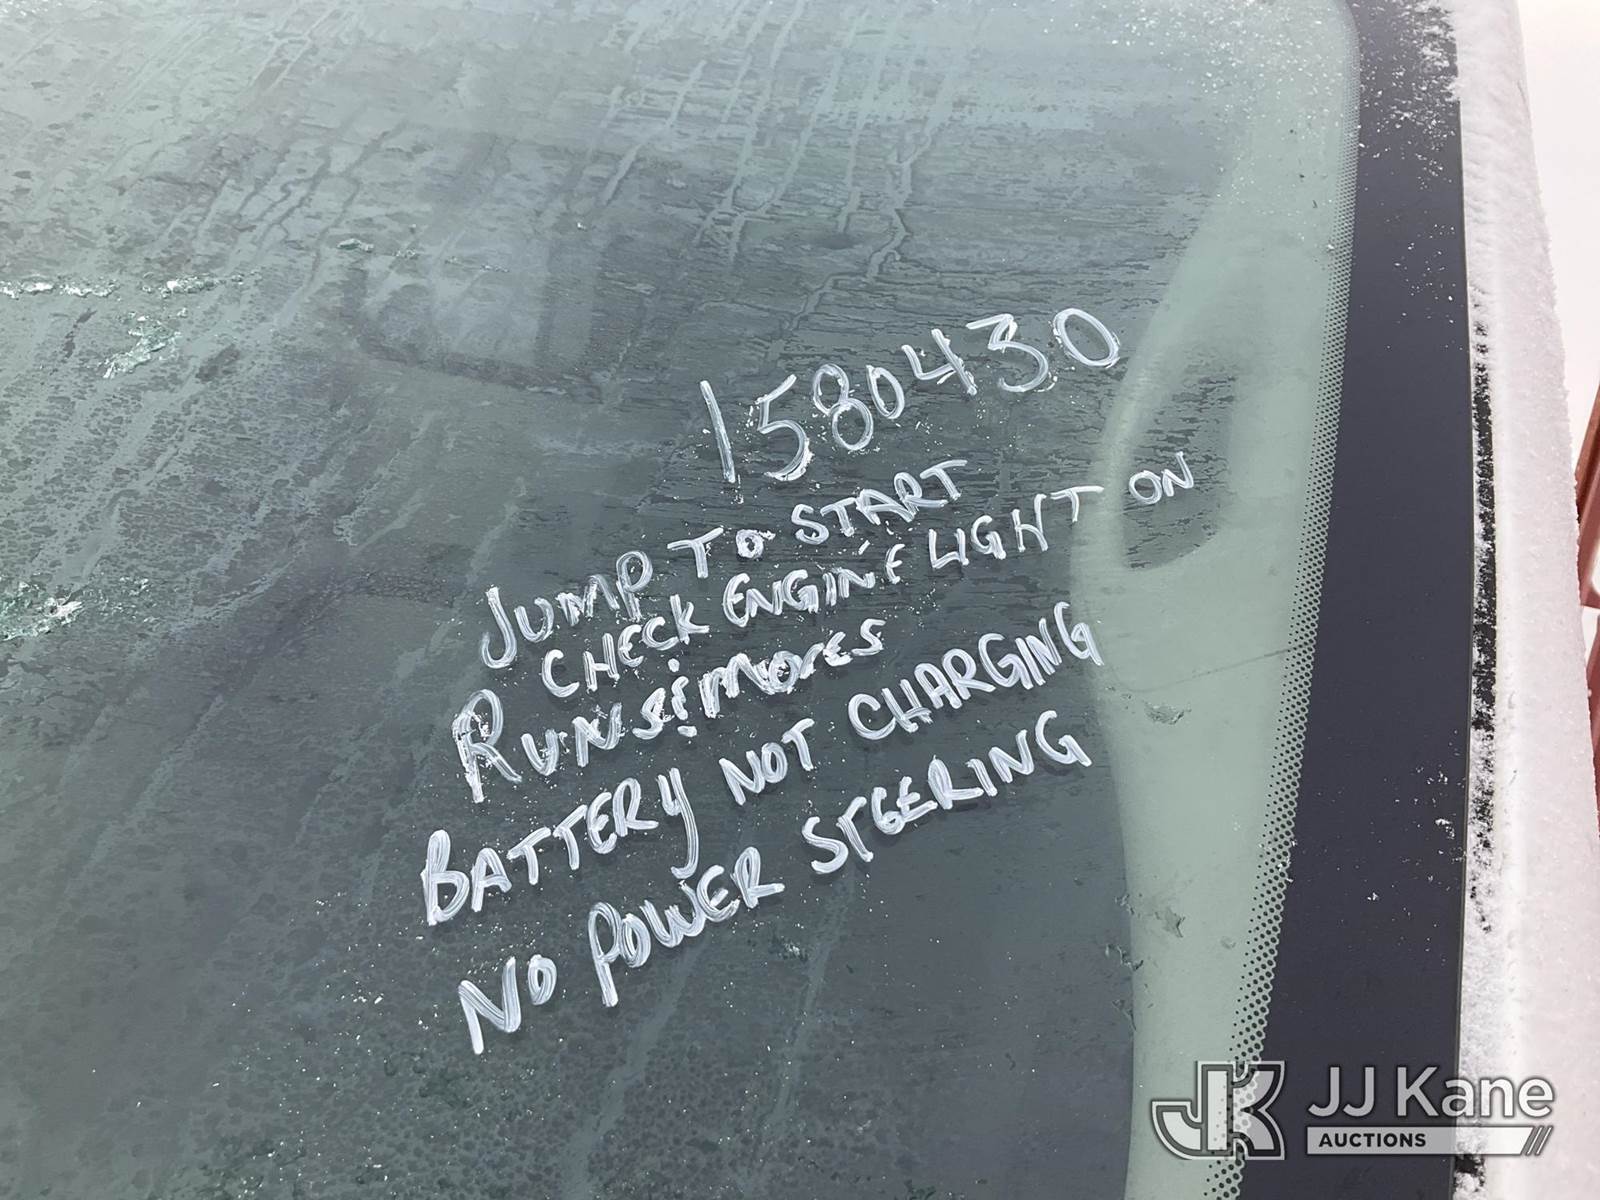 1580430
JUMP TO START
CHECK ENGINE LIGHT ON
RUNS & MOVES
BATTERY NOT CHARGING
NO POWER STEERING
JK JJ Kane
AUCTIONS